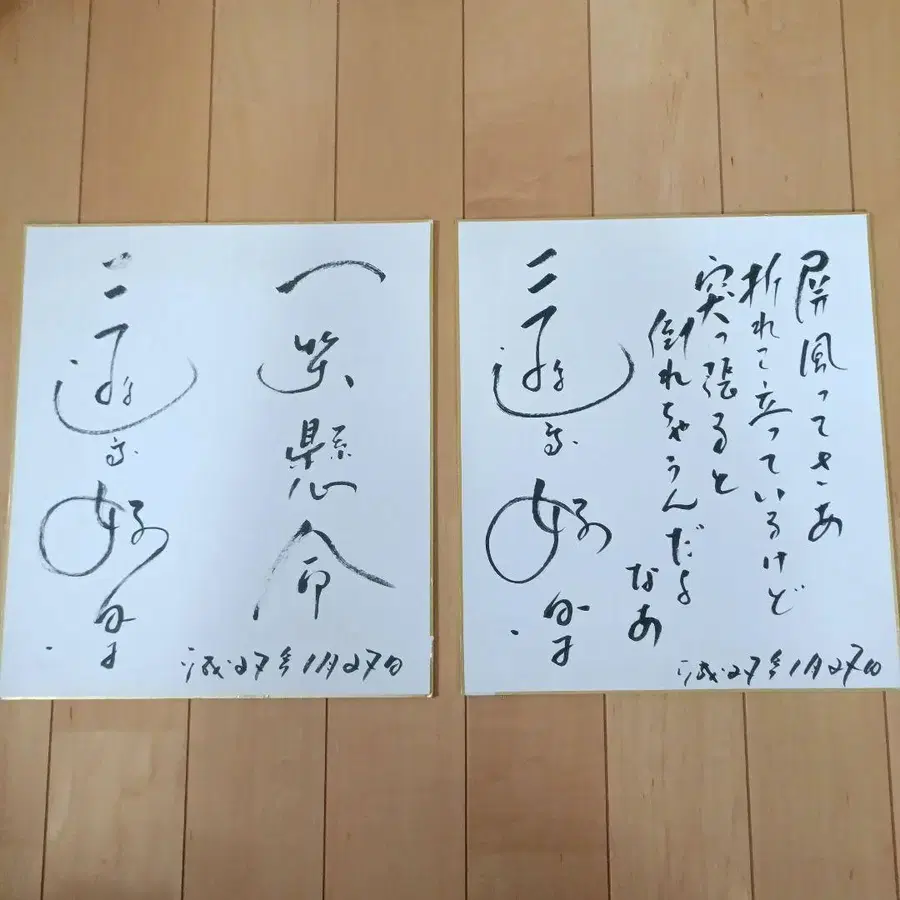 一笑懸命
三遊亭好楽
平成27年1月27日
屏風ってさあ
折れて立っているけど
突っ張ると
倒れちゃうんだよ
なあ
三遊亭好楽
平成27年1月27日